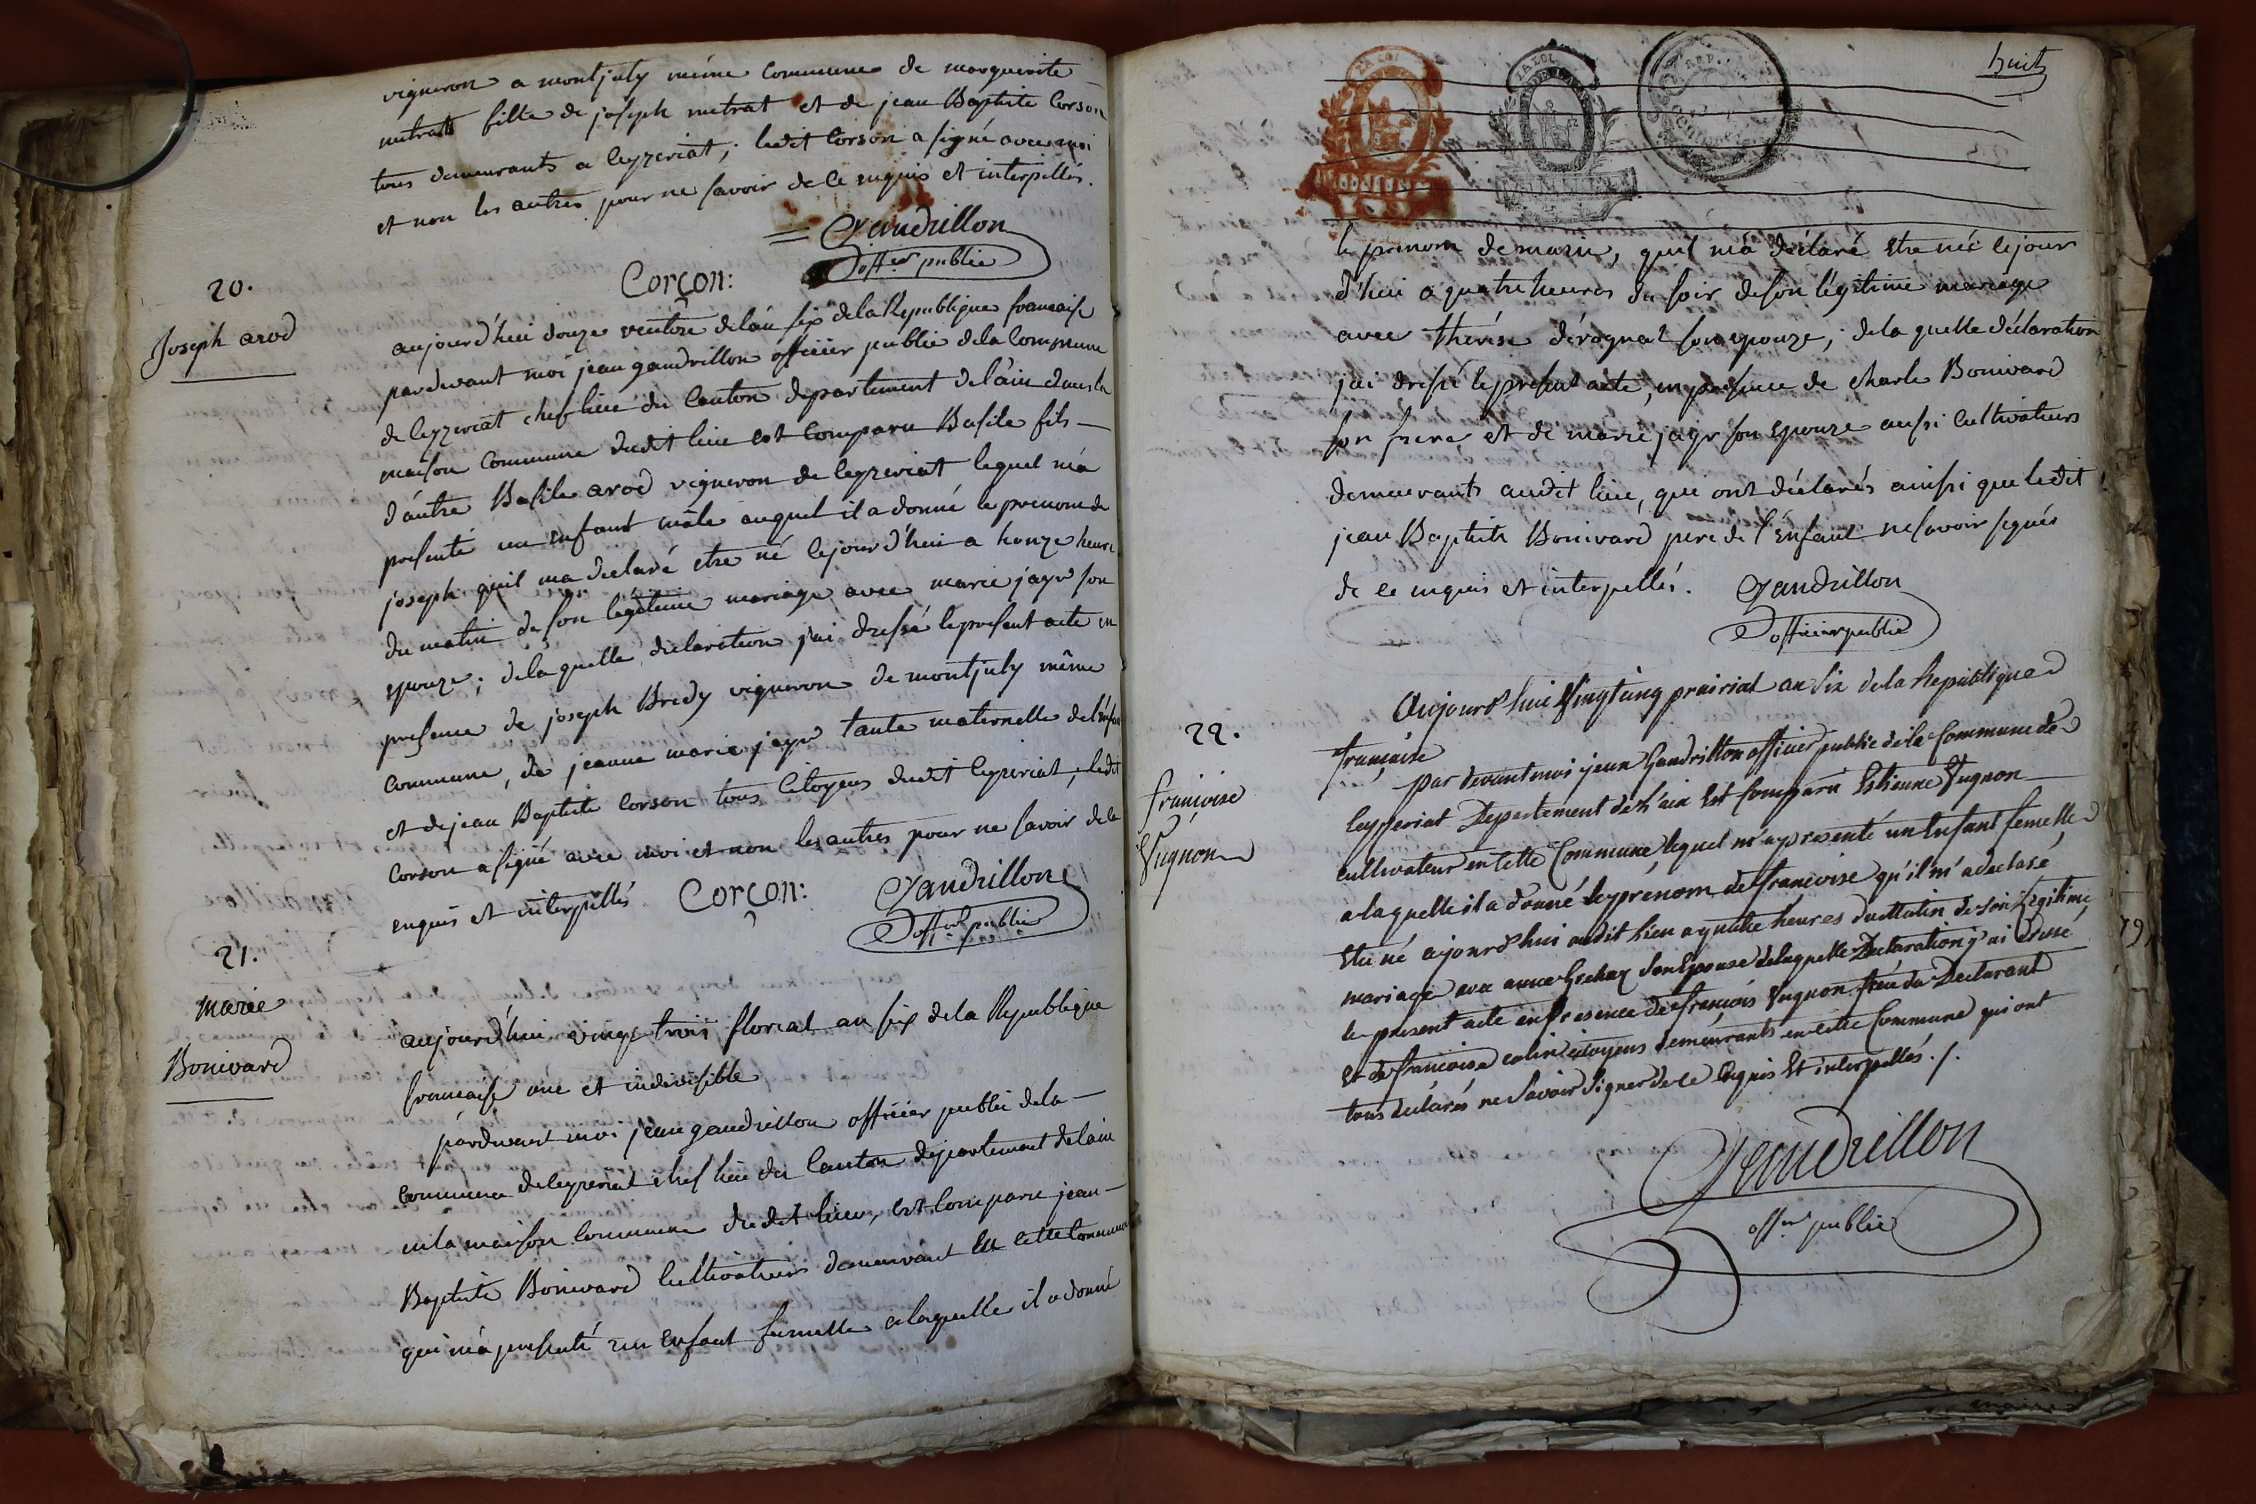 vigneron a montjuly même commune de marguerite
metrat fille de joseph metrat et de jean Baptiste Corson
tous demeurants a leyzeriat; ledit Corson a signé avec moi
et non les autres pour ne savoir de ce enquis et interpellés.
Gandrillon
offier public
Corçon:
20.
Joseph arod
aujourd'hui douze ventose de lan six de la Republique francaise
pardevant moi jean gandrillon officier public de la Commune
de leyzeriat chef lieu du Canton departement de lain dans la
maison Commune dudit lieu est Comparu Basile fils
d'autre Basile arod vigneron de leyzeriat lequel ma
presenté un enfant mâle auquel il a donné le prenom de
joseph quil ma declaré etre né lejourd'hui a honze heures
du matin de son légitime mariage avec marie jayr son
epouze; de laquelle déclaration j'ai dressé le present acte en
presence de joseph Bredy vigneron de montjuly même
Commune, de jeanne marie jayr tante maternelle de l'enfan
et de jean Baptiste Corson tous Citoyens dudit leyzeriat, ledit
Corson a signé avec moi et non les autres pour ne savoir de ce
enquis et interpellés Corçon: Gandrillon
offier public
21.
Marie
Bonivard
aujourd'hui vingt trois floreal an six de la Republique
francaise une et indivisible
pardevant moi jean gandrillon officier public de la
Commune de leyzeriat chef lieu du Canton departement de lain
en la maison Commune dudit lieu, est Comparu jean
Baptiste Bonivard Cultivateur demeurant en cette Commune
qui m'a presenté un enfant femelle a laquelle il a donné
huit
LA LOI
LA LOI
le prenom de marie, quil m'a déclaré etre née lejour
d'hui a quatre heures du soir de son légitime mariage
avec thérèse dérognat son epouze; de la quelle déclaration
j'ai dressé le present acte, en presence de charle Bonivard
son frere et de marie jayr son epouze aussi Cultivateurs
demeurants audit lieu, qui ont déclarés ainsi que ledit
jean Baptiste Bonivard pere de l'enfant ne savoir signés
de ce enquis et interpellés. Gandrillon
officier public
22.
françoise
Vugnon
Aujourd'hui Vingt cinq prairial an six de la Republique
française
par devant moi jean Gandrillon officier public de la Commune de
leysseriat Departement de l'ain Est Comparu Estienne Vugnon
cultivateur en cette Commune lequel m'a presenté un Enfant femelle
a laquelle il a donné le prénom de françoise qu'il m'a déclaré
Etre né ajourd'hui audit lieu a quatre heures du Matin de son Légitime
mariage avec anne son Epouse de laquelle Déclaration j'ai Dressé
le présent acte en presence de françois Vugnon frère du Déclarant
Et de françoise colin citoyens demeurants en cette Commune qui ont
tous déclarés ne Savoir Signer de ce Enquis Et interpellés ./.
Gandrillon
offier public